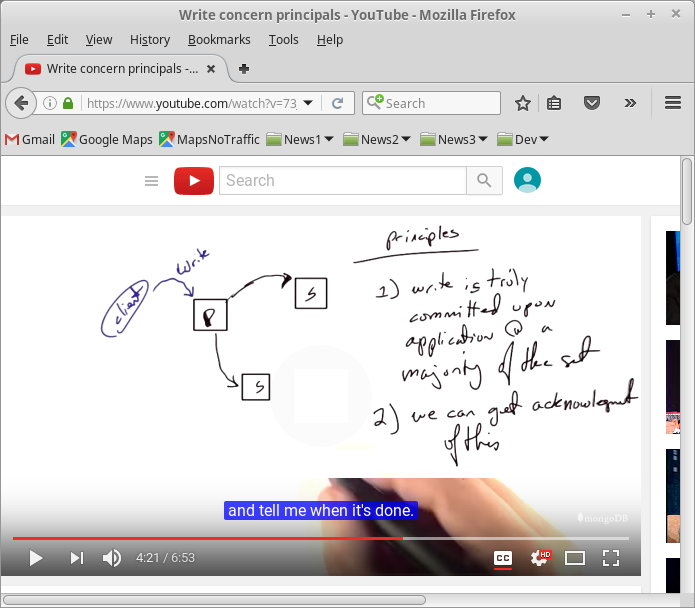 Write concern principals - YouTube - Mozilla Firefox
File Edit View History Bookmarks Tools Help
Write concern principals -...
https://www.youtube.com/watch?v=73
Search
Gmail Google Maps MapsNoTraffic News1 News2 News3 Dev
Search
principles
write
client
P
S
S
1) write is truly
committed upon
application @ a
majority of the set
2) we can get acknowlegment
of this
and tell me when it's done.
mongoDB
4:21 / 6:53
CC
HD